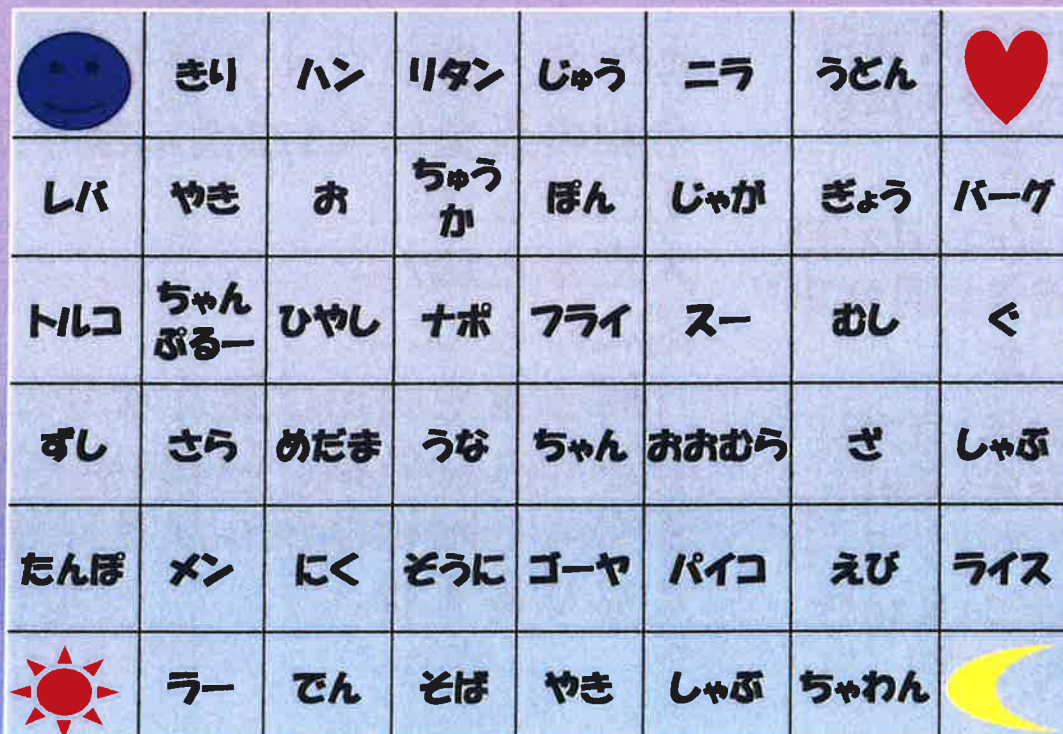 きり ハン リタン じゅう ニラ うどん
レバ やき お ちゅう ぽん じゃが ぎょう バーグ
か
トルコ ちゃん ひやし ナポ フライ スー むし ぐ
ぷるー
ずし さら めだま うな ちゃん おおむら ざ しゃぶ
たんぽ メン にく そうに ゴーヤ パイコ えび ライス
ラー でん そば やき しゃぶ ちゃわん